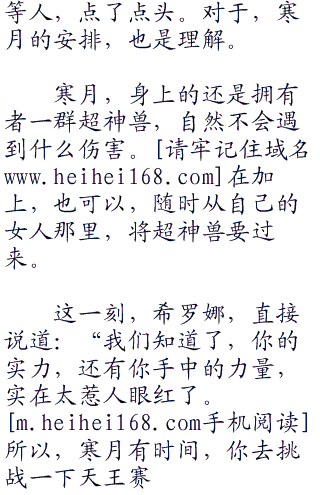 等人，点了点头。对于，寒
月的安排，也是理解。
寒月，身上的还是拥有
者一群超神兽，自然不会遇
到什么伤害。[请牢记住域名
www.heihei168.com]在加
上，也可以，随时从自己的
女人那里，将超神兽要过
来。
这一刻，希罗娜，直接
说道：“我们知道了，你的
实力，还有你手中的力量，
实在太惹人眼红了。
[m.heihei168.com手机阅读]
所以，寒月有时间，你去挑
战一下天王赛